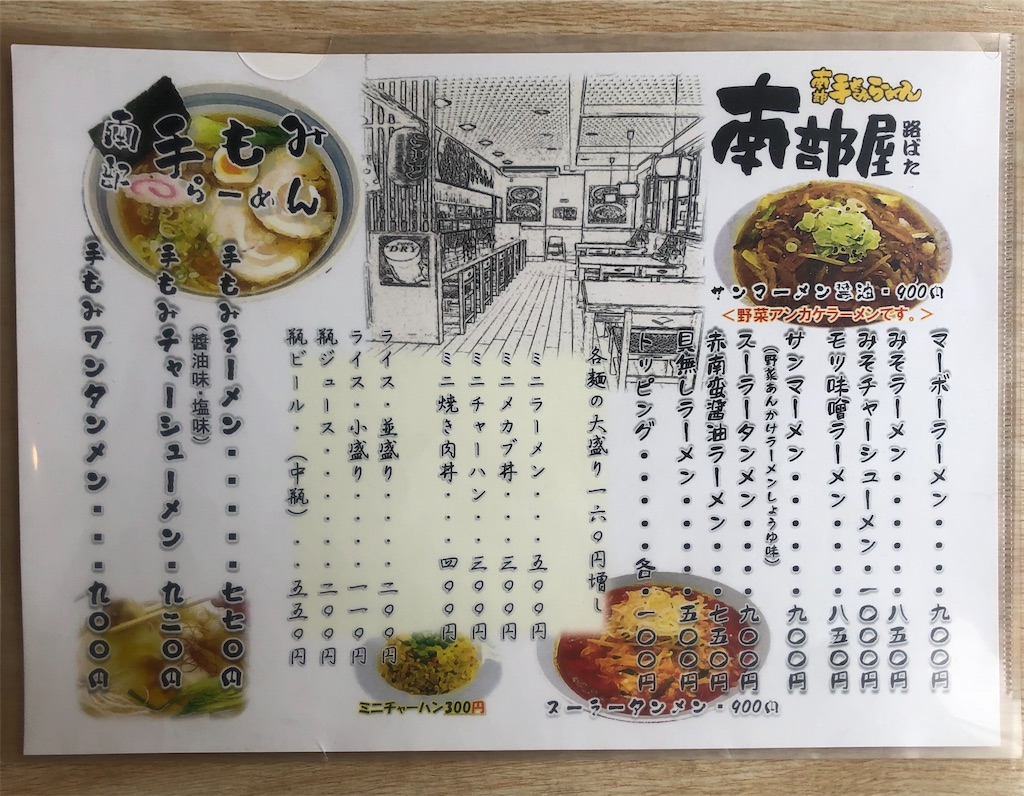 南部手もみらーめん
南部屋
路ばた
サンマーメン醤油・900円
<野菜アンカケラーメンです。>
マーボーラーメン・・・・九〇〇円
みそラーメン・・・・・八五〇円
みそチャーシューメン・一〇〇〇円
モツ味噌ラーメン・・・八五〇円
サンマーメン・・・・・九〇〇円
(野菜あんかけラーメンしょうゆ味)
スーラータンメン・・・九〇〇円
赤南蛮醤油ラーメン・・七五〇円
具無しラーメン・・・・五〇〇円
トッピング・・・・・各・一〇〇円
各麺の大盛り一六〇円増し
ミニラーメン・・・五〇〇円
ミニメカブ丼・・・三〇〇円
ミニチャーハン・・三〇〇円
ミニ焼き肉丼・・・四〇〇円
ライス・並盛り・・・二〇〇円
ライス・小盛り・・・一一〇円
瓶ジュース・・・・・二〇〇円
瓶ビール・(中瓶)・・五五〇円
DRY
ミニチャーハン300円
スーラータンメン・900円
南部手もみらーめん
手もみラーメン・・・・・七七〇円
(醤油味・塩味)
手もみチャーシューメン・九二〇円
手もみワンタンメン・・・九〇〇円